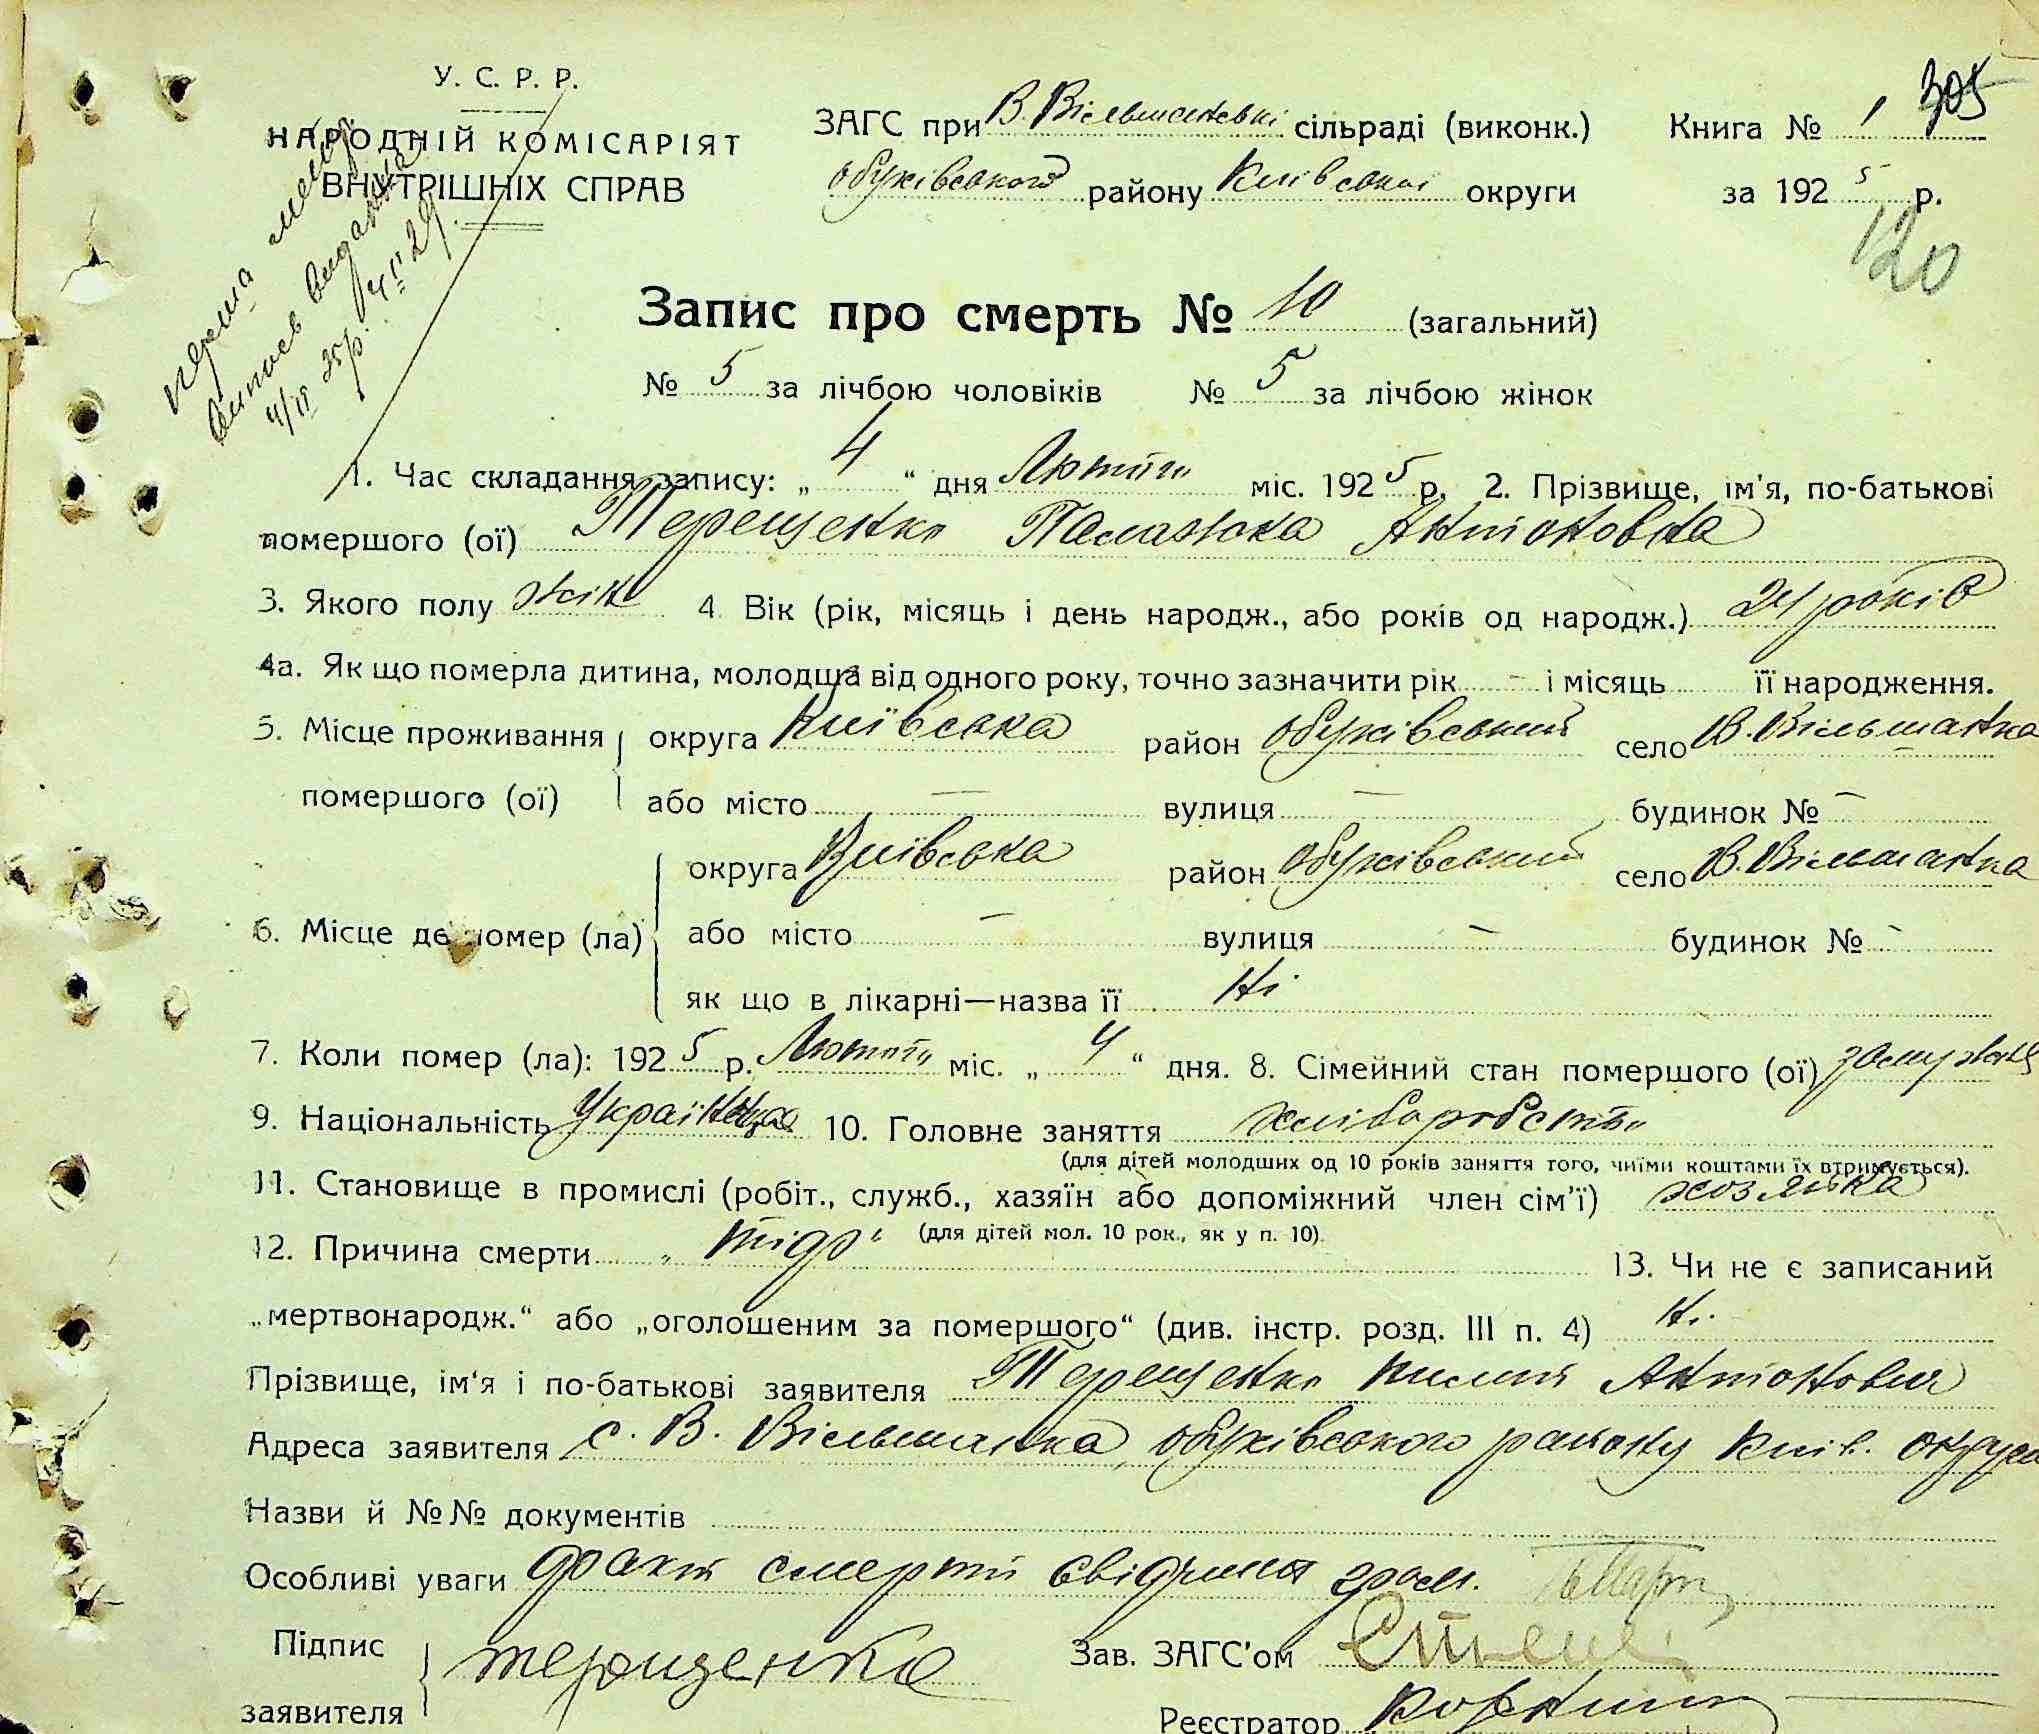 У. С. Р. Р.
НАРОДНІЙ КОМІСАРІЯТ
ВНУТРІШНІХ СПРАВ
перша
випись видана
ЗАГС при В. Вільшанській сільраді (виконк.)
Обухівського району Київської округи
Книга № 1 305
за 1925 р.
120
Запис про смерть № 10 (загальний)
№ 5 за лічбою чоловіків № 5 за лічбою жінок
1. Час складання запису: „4“ дня Лютого міс. 1925 р. 2. Прізвище, ім'я, по-батькові
помершого (ої) Терещенко Паламжка Антоновна
3. Якого полу жін 4. Вік (рік, місяць і день народж., або років од народж.) 24 років
4а. Як що померла дитина, молодша від одного року, точно зазначити рік - і місяць її народження.
5. Місце проживання помершого (ої) округа Київська район Обухівський село В. Вільшанка
або місто — вулиця — будинок № —
6. Місце де помер (ла) округа Київська район Обухівський село В. Вільшанка
або місто — вулиця — будинок № -
як що в лікарні—назва її Ні
7. Коли помер (ла): 1925 р. Лютого міс. „4“ дня. 8. Сімейний стан помершого (ої) замужня
9. Національність Українка 10. Головне заняття хліборобство
(для дітей молодших од 10 років заняття того, чиїми коштами їх втримується).
11. Становище в промислі (робіт., служб., хазяїн або допоміжний член сім'ї) хозяйка
(для дітей мол. 10 рок., як у п. 10).
12. Причина смерти 13. Чи не є записаний
„мертвонародж.“ або „оголошеним за помершого“ (див. інстр. розд. III п. 4) Ні
Прізвище, ім'я і по-батькові заявителя Терещенко Килип Антонович
Адреса заявителя с. В. Вільшанка, Обухівського району Київ. округи
Назви й №№ документів
Особливі уваги факт смерти свідчили гром.
Підпис заявителя Терещенко Зав. ЗАГС'ом
Реєстратор